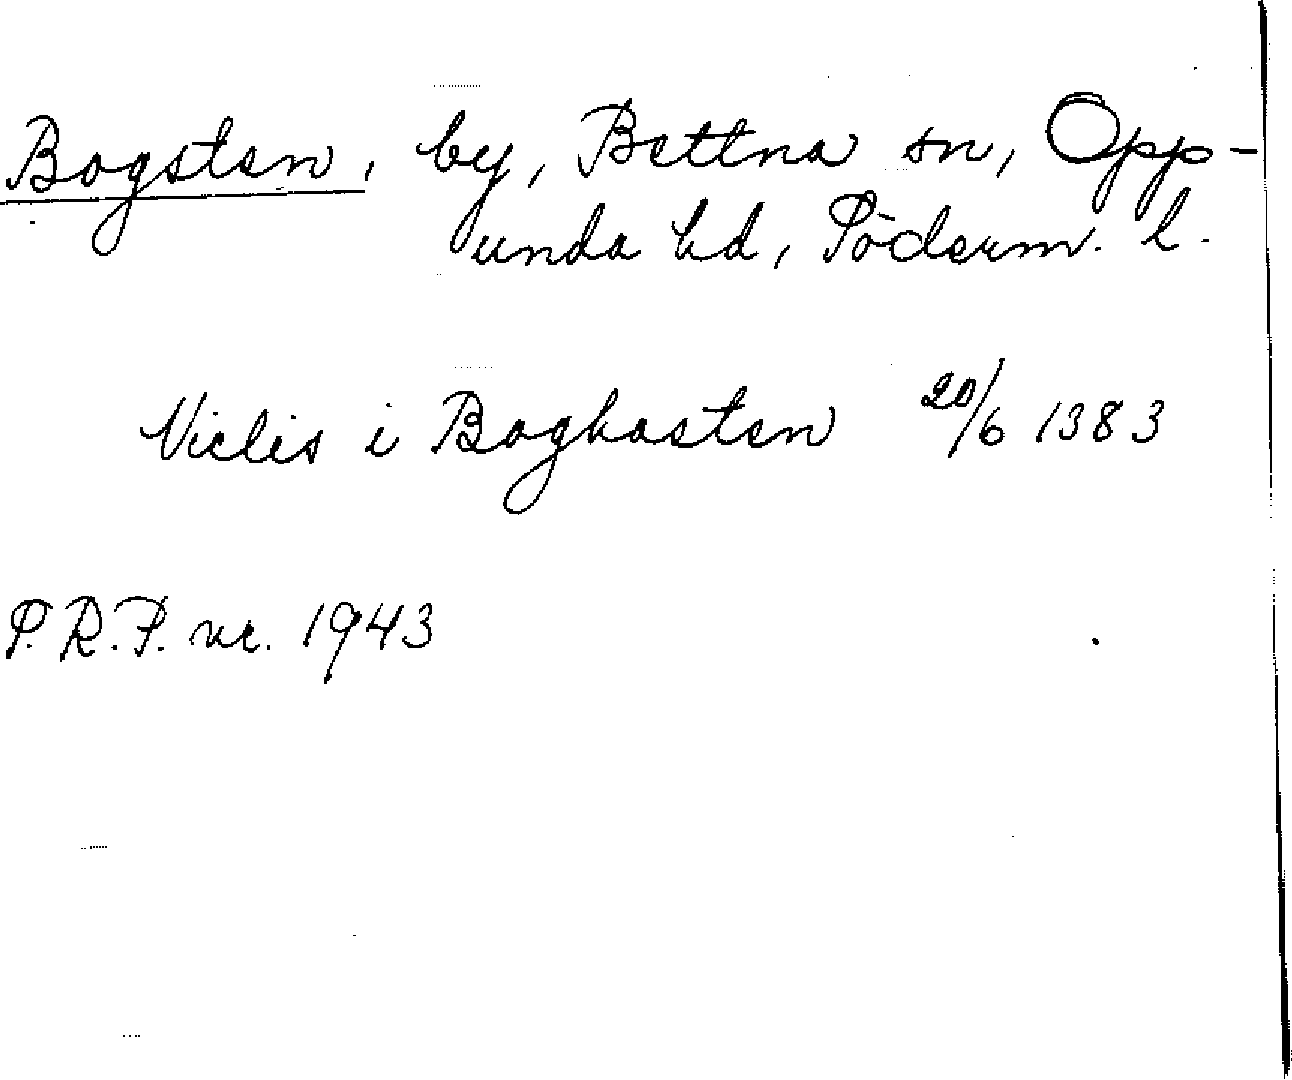 Bogsten, by, Bettna sn, Opp-
unda hd, Söderm. l.
Niclis i Boghasten 20/6 1383
S.R.P. nr. 1943